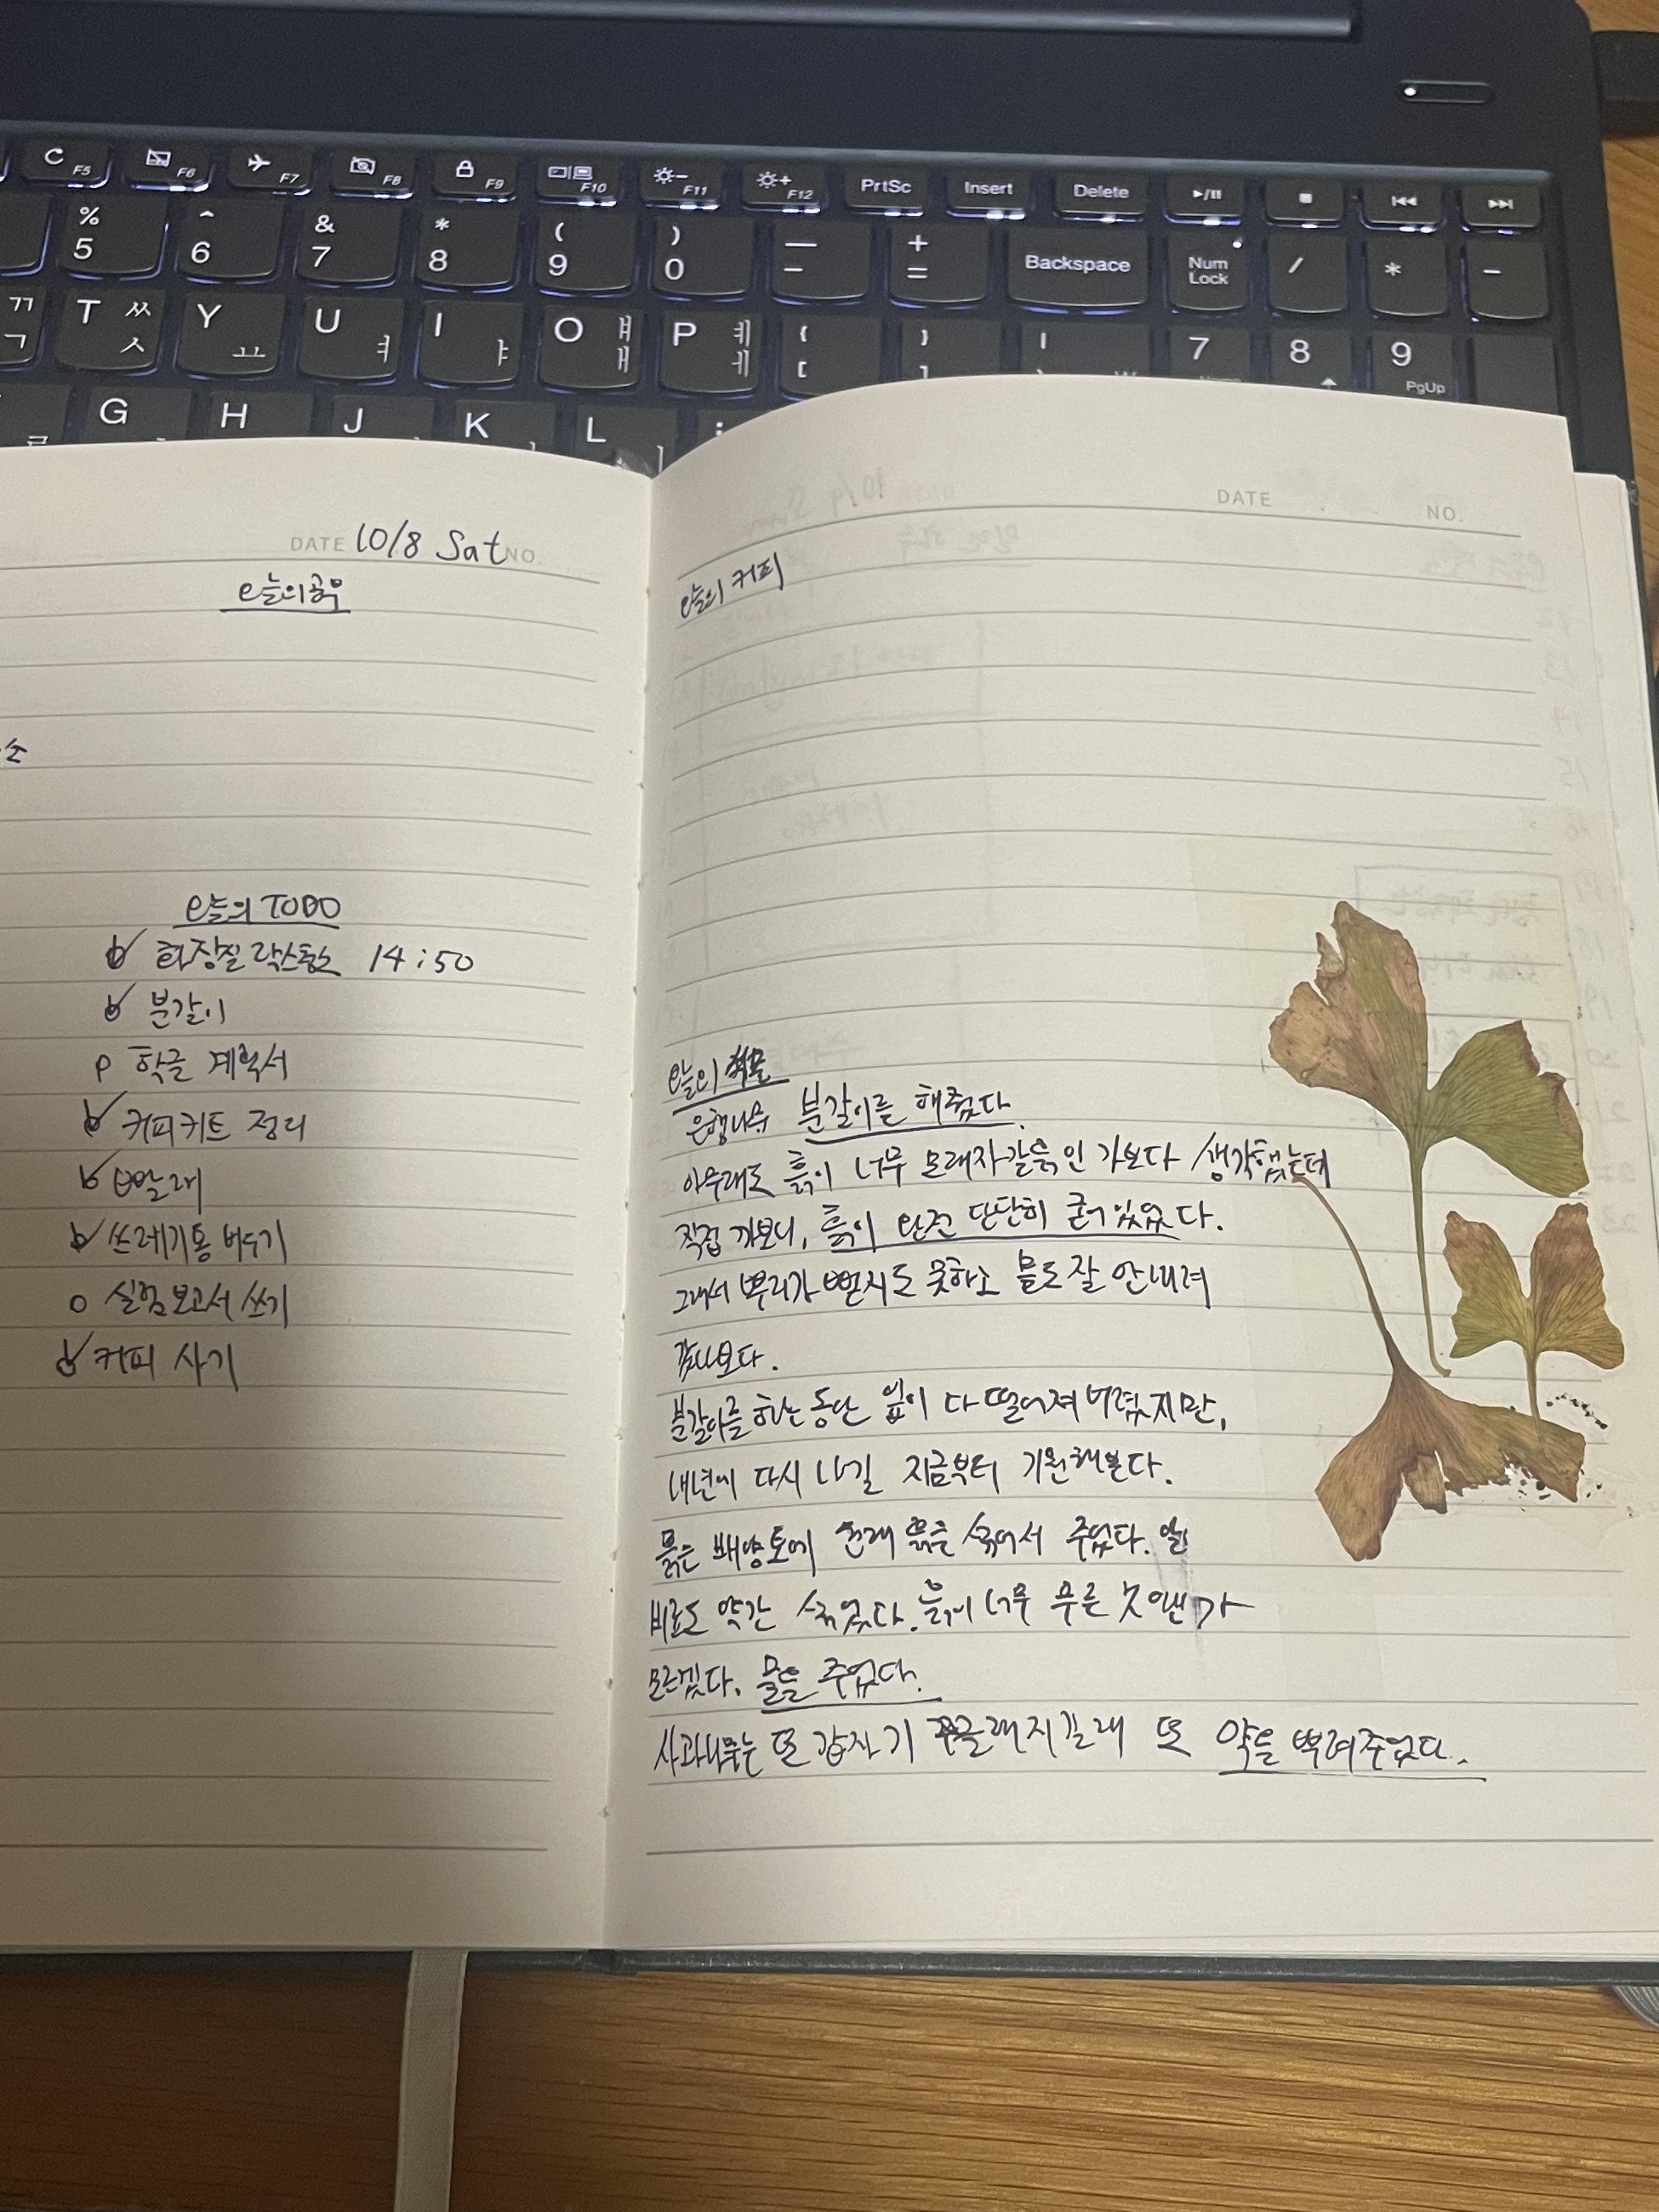 F5 F6 F7 F8 F9 F10 F11 F12 PrtSc Insert Delete
% 5 ^ 6 & 7 * 8 ( 9 ) 0 — - + = Backspace Num Lock / * -
ㄲ ㄱ T ㅆ ㅅ Y ㅛ U ㅕ I ㅑ O ㅒ ㅐ P ㅖ ㅔ { [ } ] 7 8 9 PgUp
ㄹ G H J K L
DATE 10/8 Sat NO.
오늘의 공부
소
오늘의 TODO
화장실 락스청소 14:50
분갈이
학글 계획서
커피키트 정리
빨래
쓰레기통 비우기
실험보고서 쓰기
커피 사기
DATE NO.
오늘의 커피
오늘의 식물
은행나무 분갈이를 해줬다.
아무래도 흙이 너무 모래자갈흙인 가보다 생각했는데
직접 까보니, 흙이 완전 단단히 굳어있었다.
그래서 뿌리가 뻗지도 못하고 물도 잘 안내려
갔나보다.
분갈이를 하는 동안 잎이 다 떨어져버렸지만,
내년에 다시 나길 지금부터 기원해본다.
흙은 배양토에 원래 흙을 섞어서 주었다. 알
비료도 약간 섞었다. 흙이 너무 무른 것 아닌가
모르겠다. 물을 주었다.
사과나무는 또 갑자기 꾸글래지길래 또 약을 뿌려주었다.